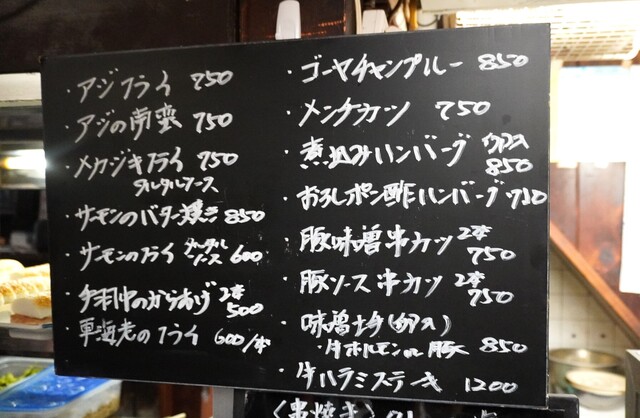 ・アジフライ 750
・アジの南蛮 750
・メカジキフライ 750
タルタルソース
・サーモンのバター焼き 850
・サーモンのフライ タルタルソース 600
・手羽中のからあげ 2本 500
・車海老のフライ 600/本
・ゴーヤチャンプルー 850
・メンチカツ 750
・煮込みハンバーグ 850
・おろしポン酢ハンバーグ 750
・豚味噌串カツ 2本 750
・豚ソース串カツ 2本 750
・味噌土手(卵入)
・牛ホルモン or 豚 850
・牛ハラミステーキ 1200
〈串焼き〉